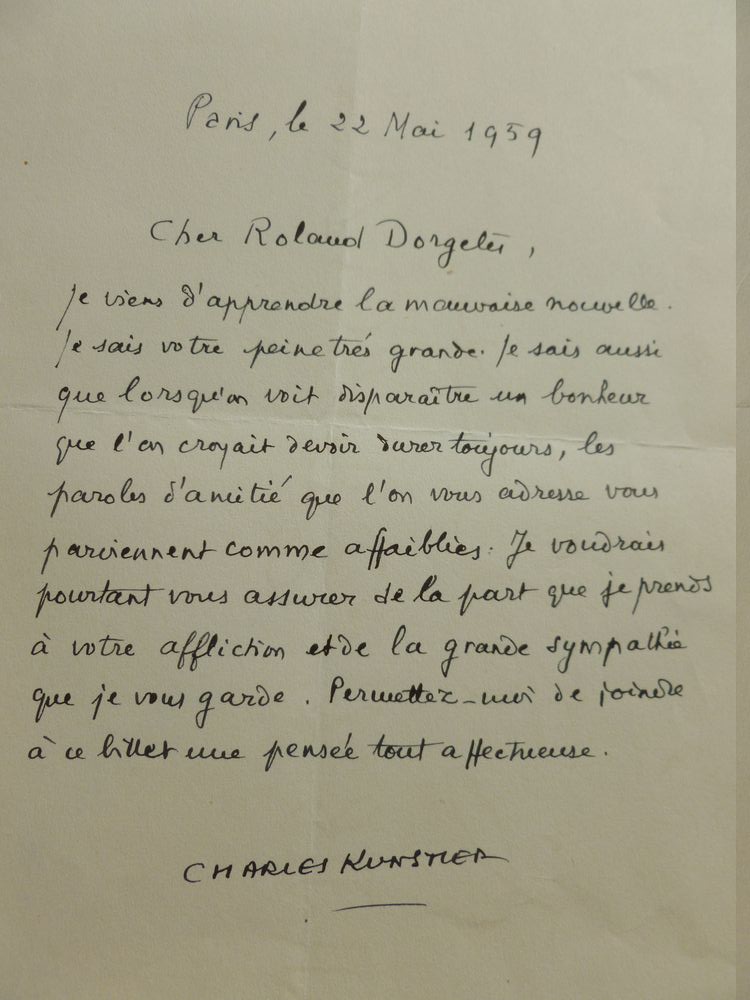 Paris, le 22 Mai 1959
Cher Roland Dorgelès,
Je viens d'apprendre la mauvaise nouvelle.
Je sais votre peine très grande. Je sais aussi
que lorsqu'on voit disparaître un bonheur
que l'on croyait devoir durer toujours, les
paroles d'amitié que l'on vous adresse vous
parviennent comme affaiblies. Je voudrais
pourtant vous assurer de la part que je prends
à votre affliction et de la grande sympathie
que je vous garde. Permettez-moi de joindre
à ce billet une pensée tout affectueuse.
CHARLES KUNSTLER